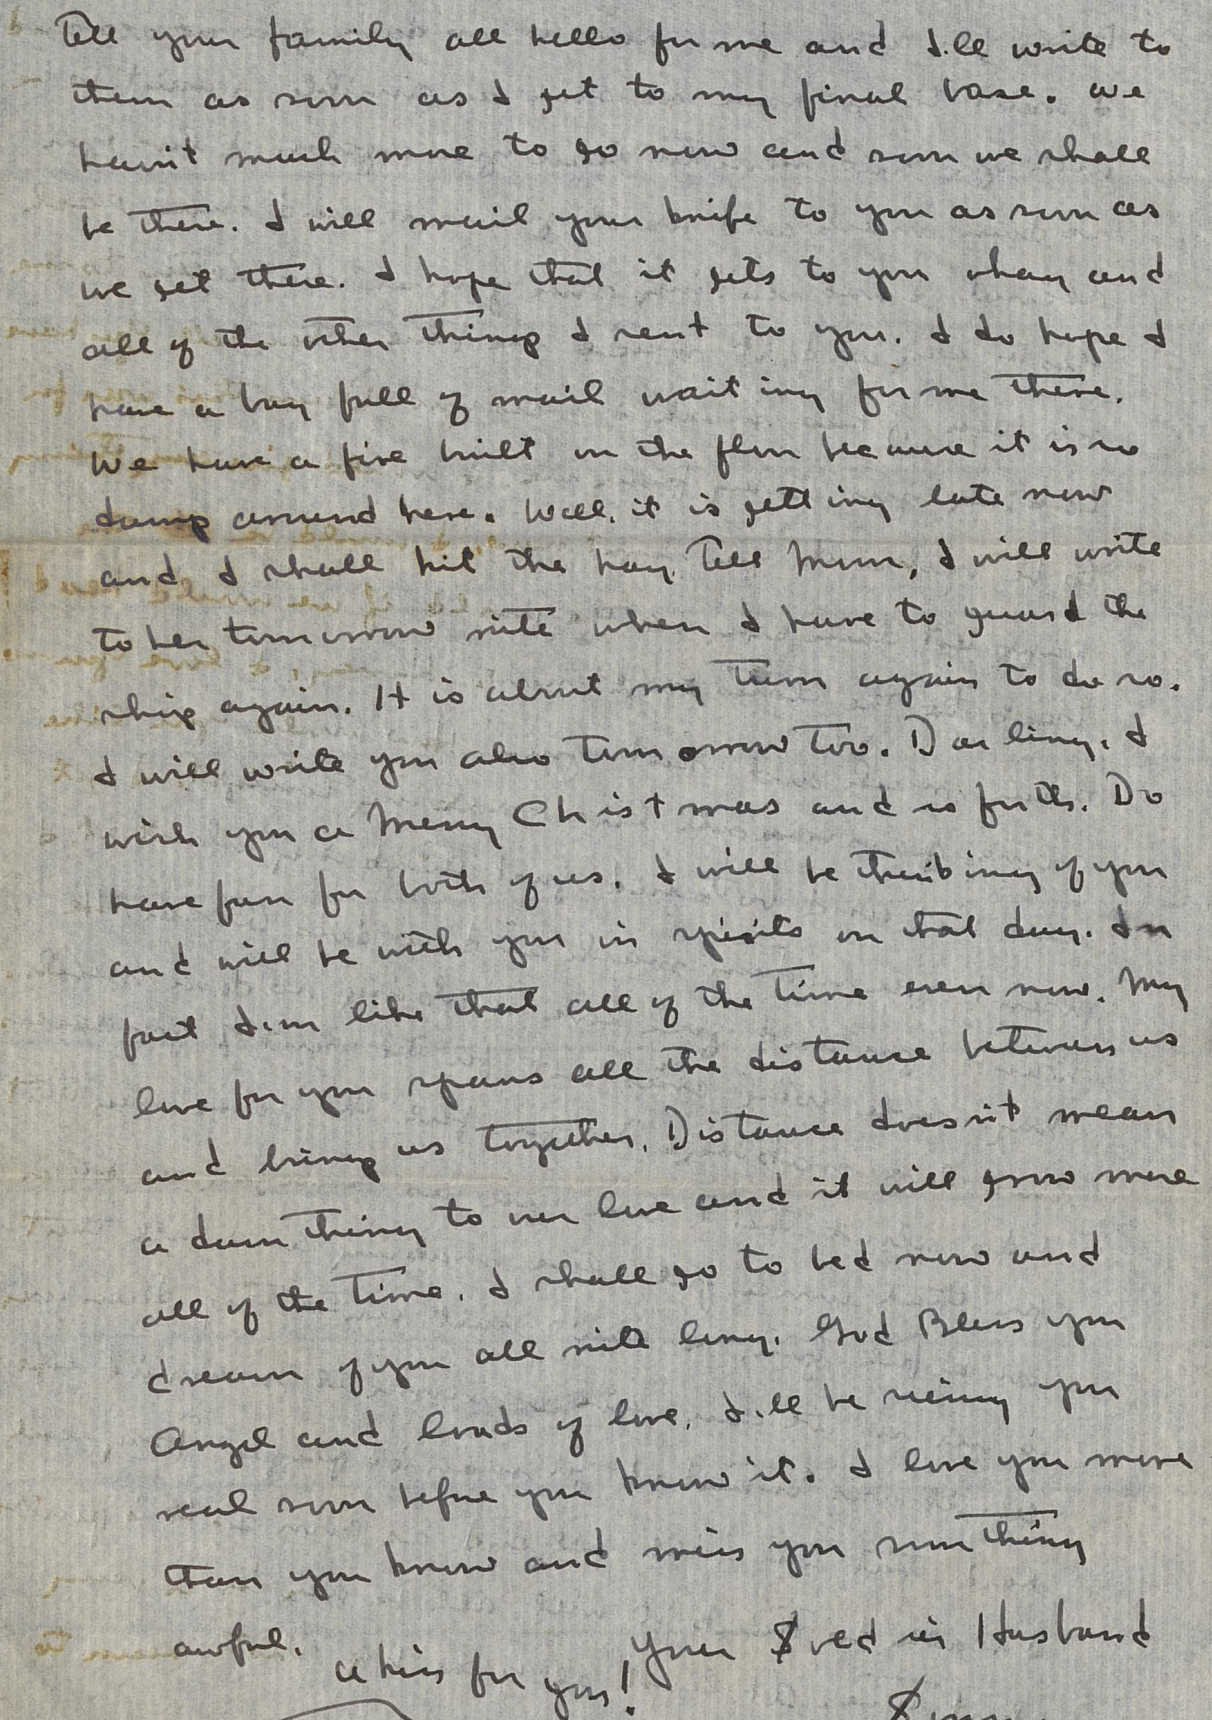 Tell your family all hello for me and I'll write to
them as soon as I get to my final base. We
havn't much more to go now and soon we shall
be there. I will mail your knife to you as soon as
we get there. I hope that it gets to you okay and
all of the other things I sent to you. I do hope I
have a bag full of mail waiting for me there.
We have a fire built on the floor because it is so
damp around here. Well, it is getting late now
and I shall hit the hay. Tell Mum, I will write
to her tomorrow nite when I have to guard the
ship again. It is about my turn again to do so.
I will write you also tomorrow too. Darling, I
wish you a Merry Christmas and so forth. Do
have fun for both of us. I will be thinking of you
and will be with you in spirits on that day. In
fact I'm like that all of the time even now. My
love for you spans all the distance between us
and brings us together. Distance doesn't mean
a darn thing to our love and it will grow more
all of the time. I shall go to bed now and
dream of you all nite long. God Bless you
Angel and loads of love. I'll be seeing you
real soon before you know it. I love you more
than you know and miss you something
awful.
Your Husband
a kiss for you!